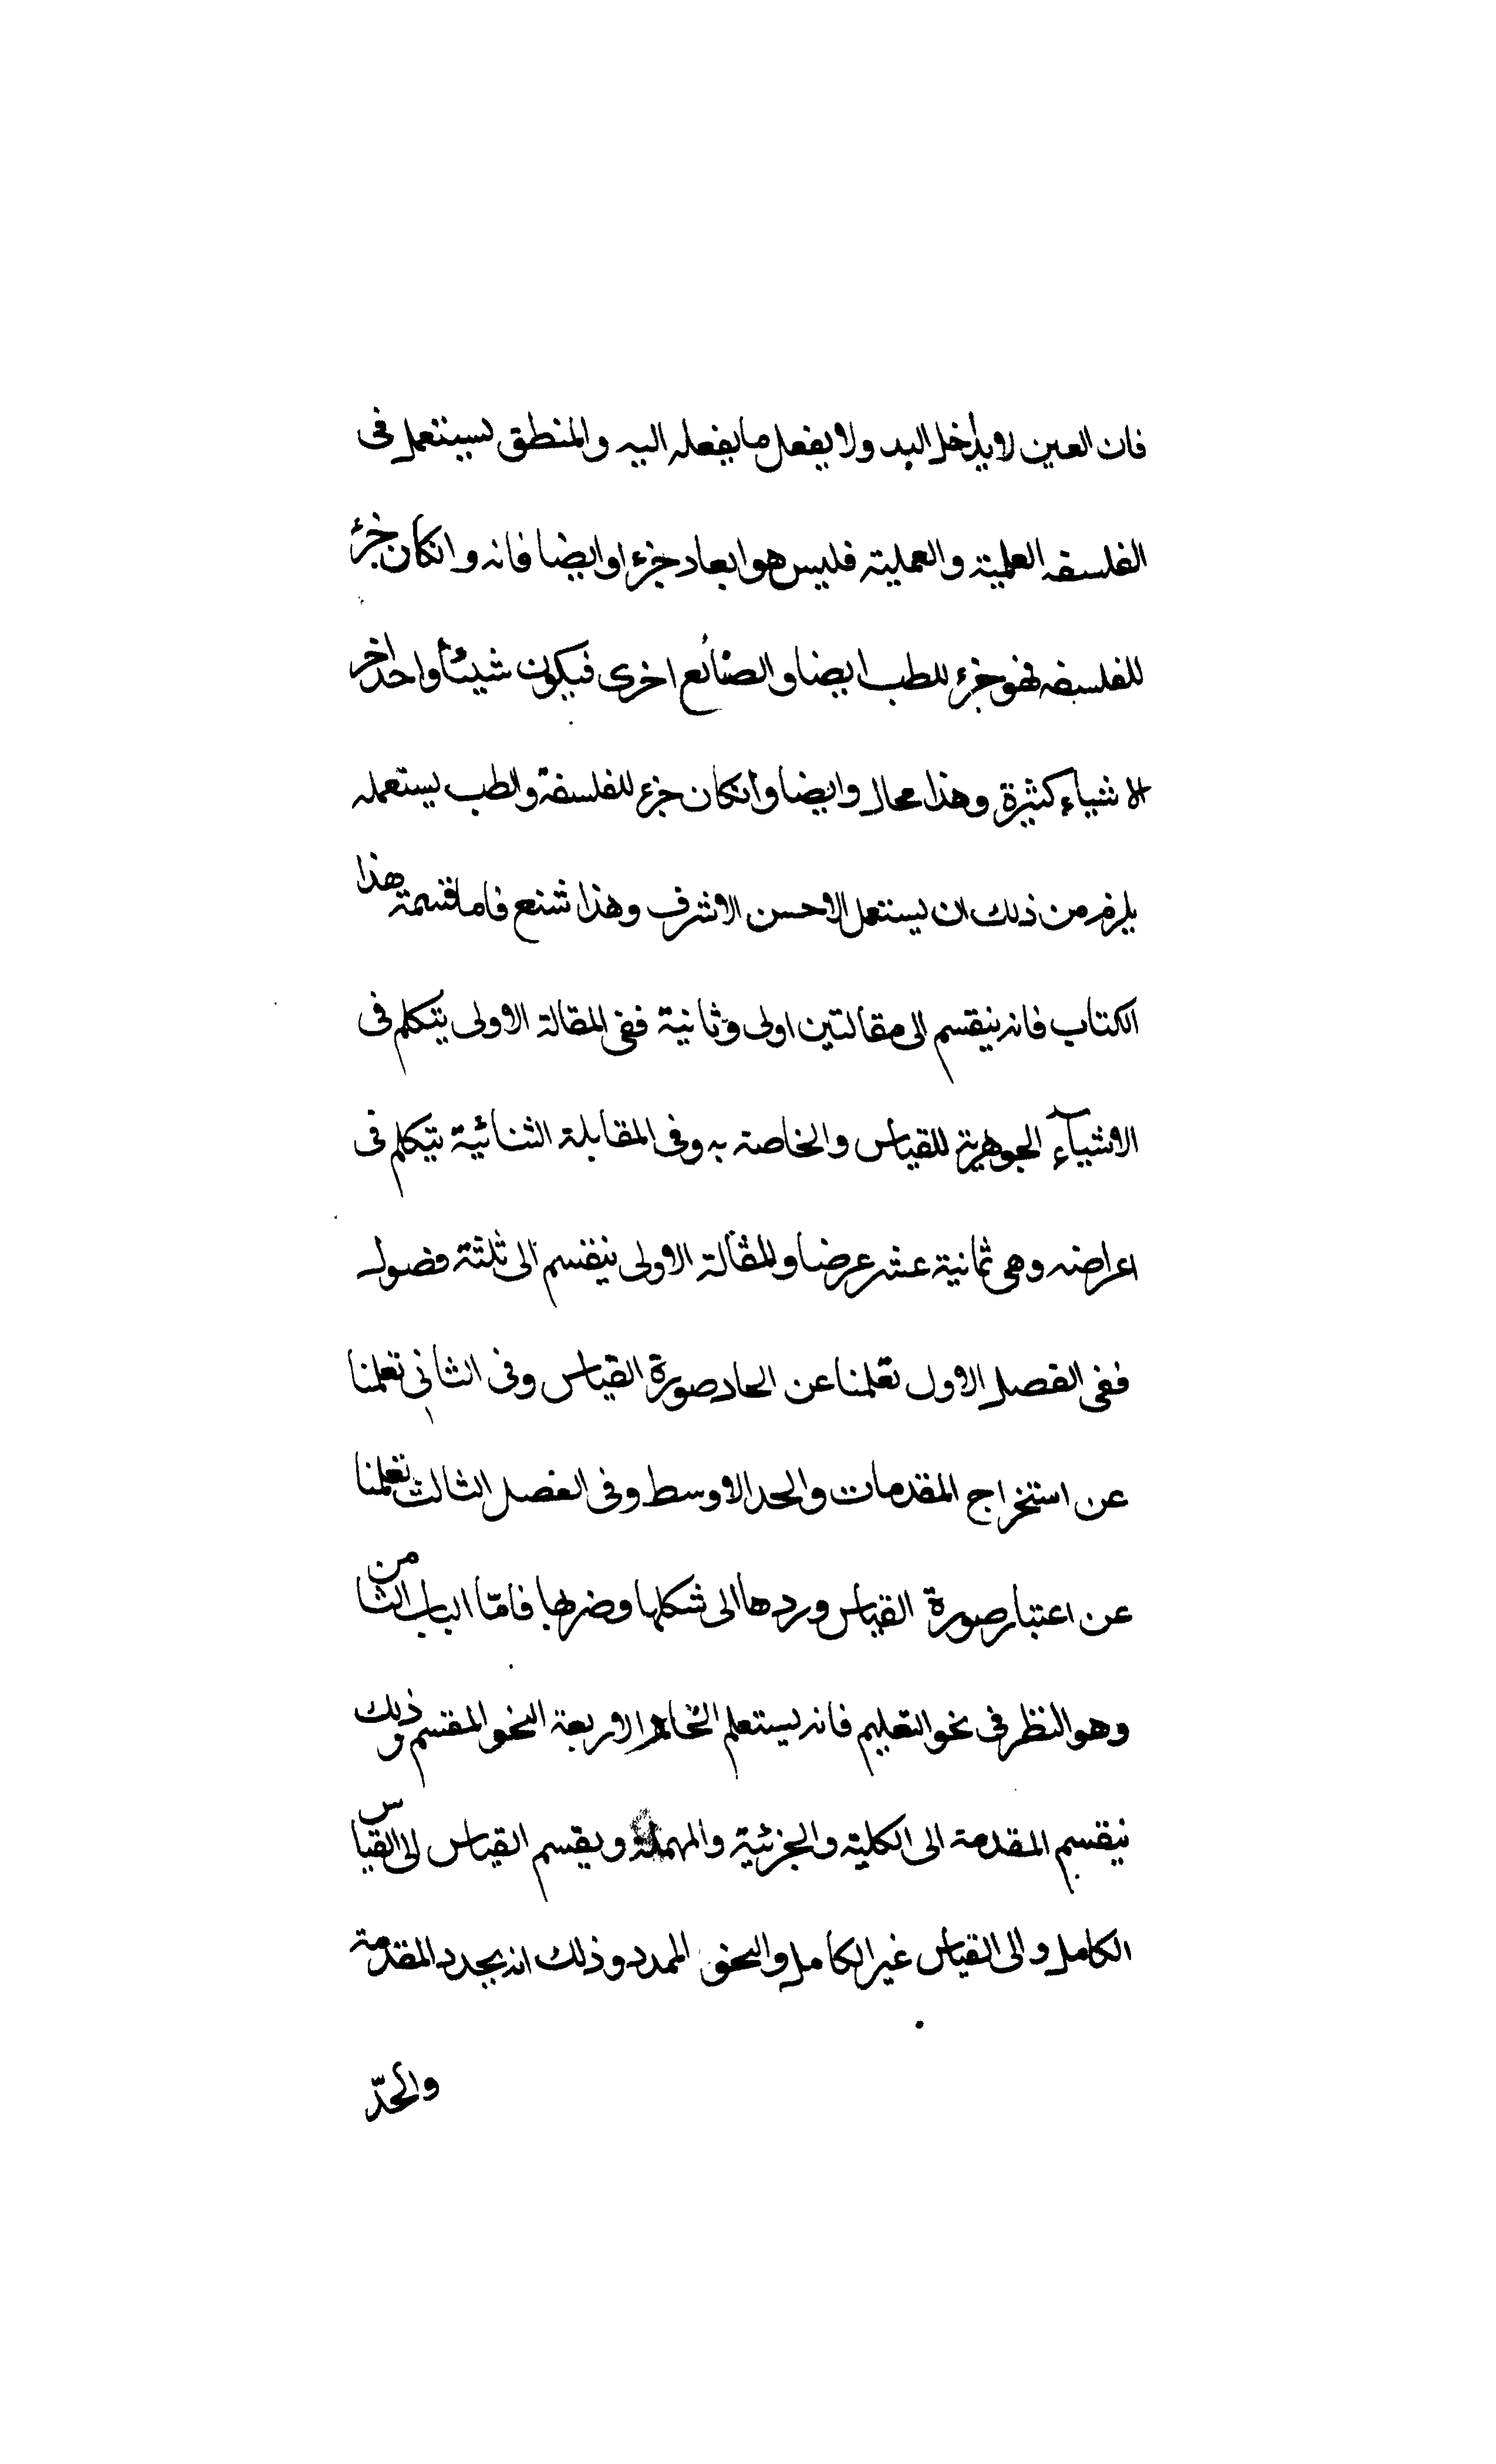 فان العين لا يداخل اليد ولا يفعل ما يفعله اليه والمنطق يستعمل فى
الفلسفه العلمية والعملية فليس هو ابعاد جزءا وايضا فانه وانكان جزء
للفلسفه فهو جزء للطب ايضا والصنائع اخرى فيكون شيئا واحد اخر
لاشياء كثيرة وهذا محال وايضا وانكان جزء للفلسفة والطب يستعمله
يلزم من ذلك ان يستعمل الاحسن الاشرف وهذا شنع فاما قسمة هذا
الكتاب فانه ينقسم الى مقالتين اولى وثانية ففى المقالة الاولى يتكلم فى
الاشيآء الجوهرية للقياس والخاصة به وفى المقابلة الثنائية يتكلم فى
اعراضه وهى ثمانية عشر عرضا والمقالة الاولى ينقسم الى ثلثة فصول
ففى الفصل الاول تعلمنا عن الحاد صورة القياس وفى الثانى تعلمنا
عن استخراج المقدمات والحد الاوسط وفى الفصل الثالث تعلمنا
عن اعتبار صورة القياس وردها الى شكلها وضربها فامّا الباب الثامن
وهو النظر فى نحو التعليم فانه يستعلم الاربعة النحو المقسم وذلك
ينقسم المقدمة الى الكلية والجزئية والمهملة ويقسم القياس الى القياس
الكامل والى القياس غير الكامل والنحو الممدد وذلك انه يجدد المقدمة
والحدّ